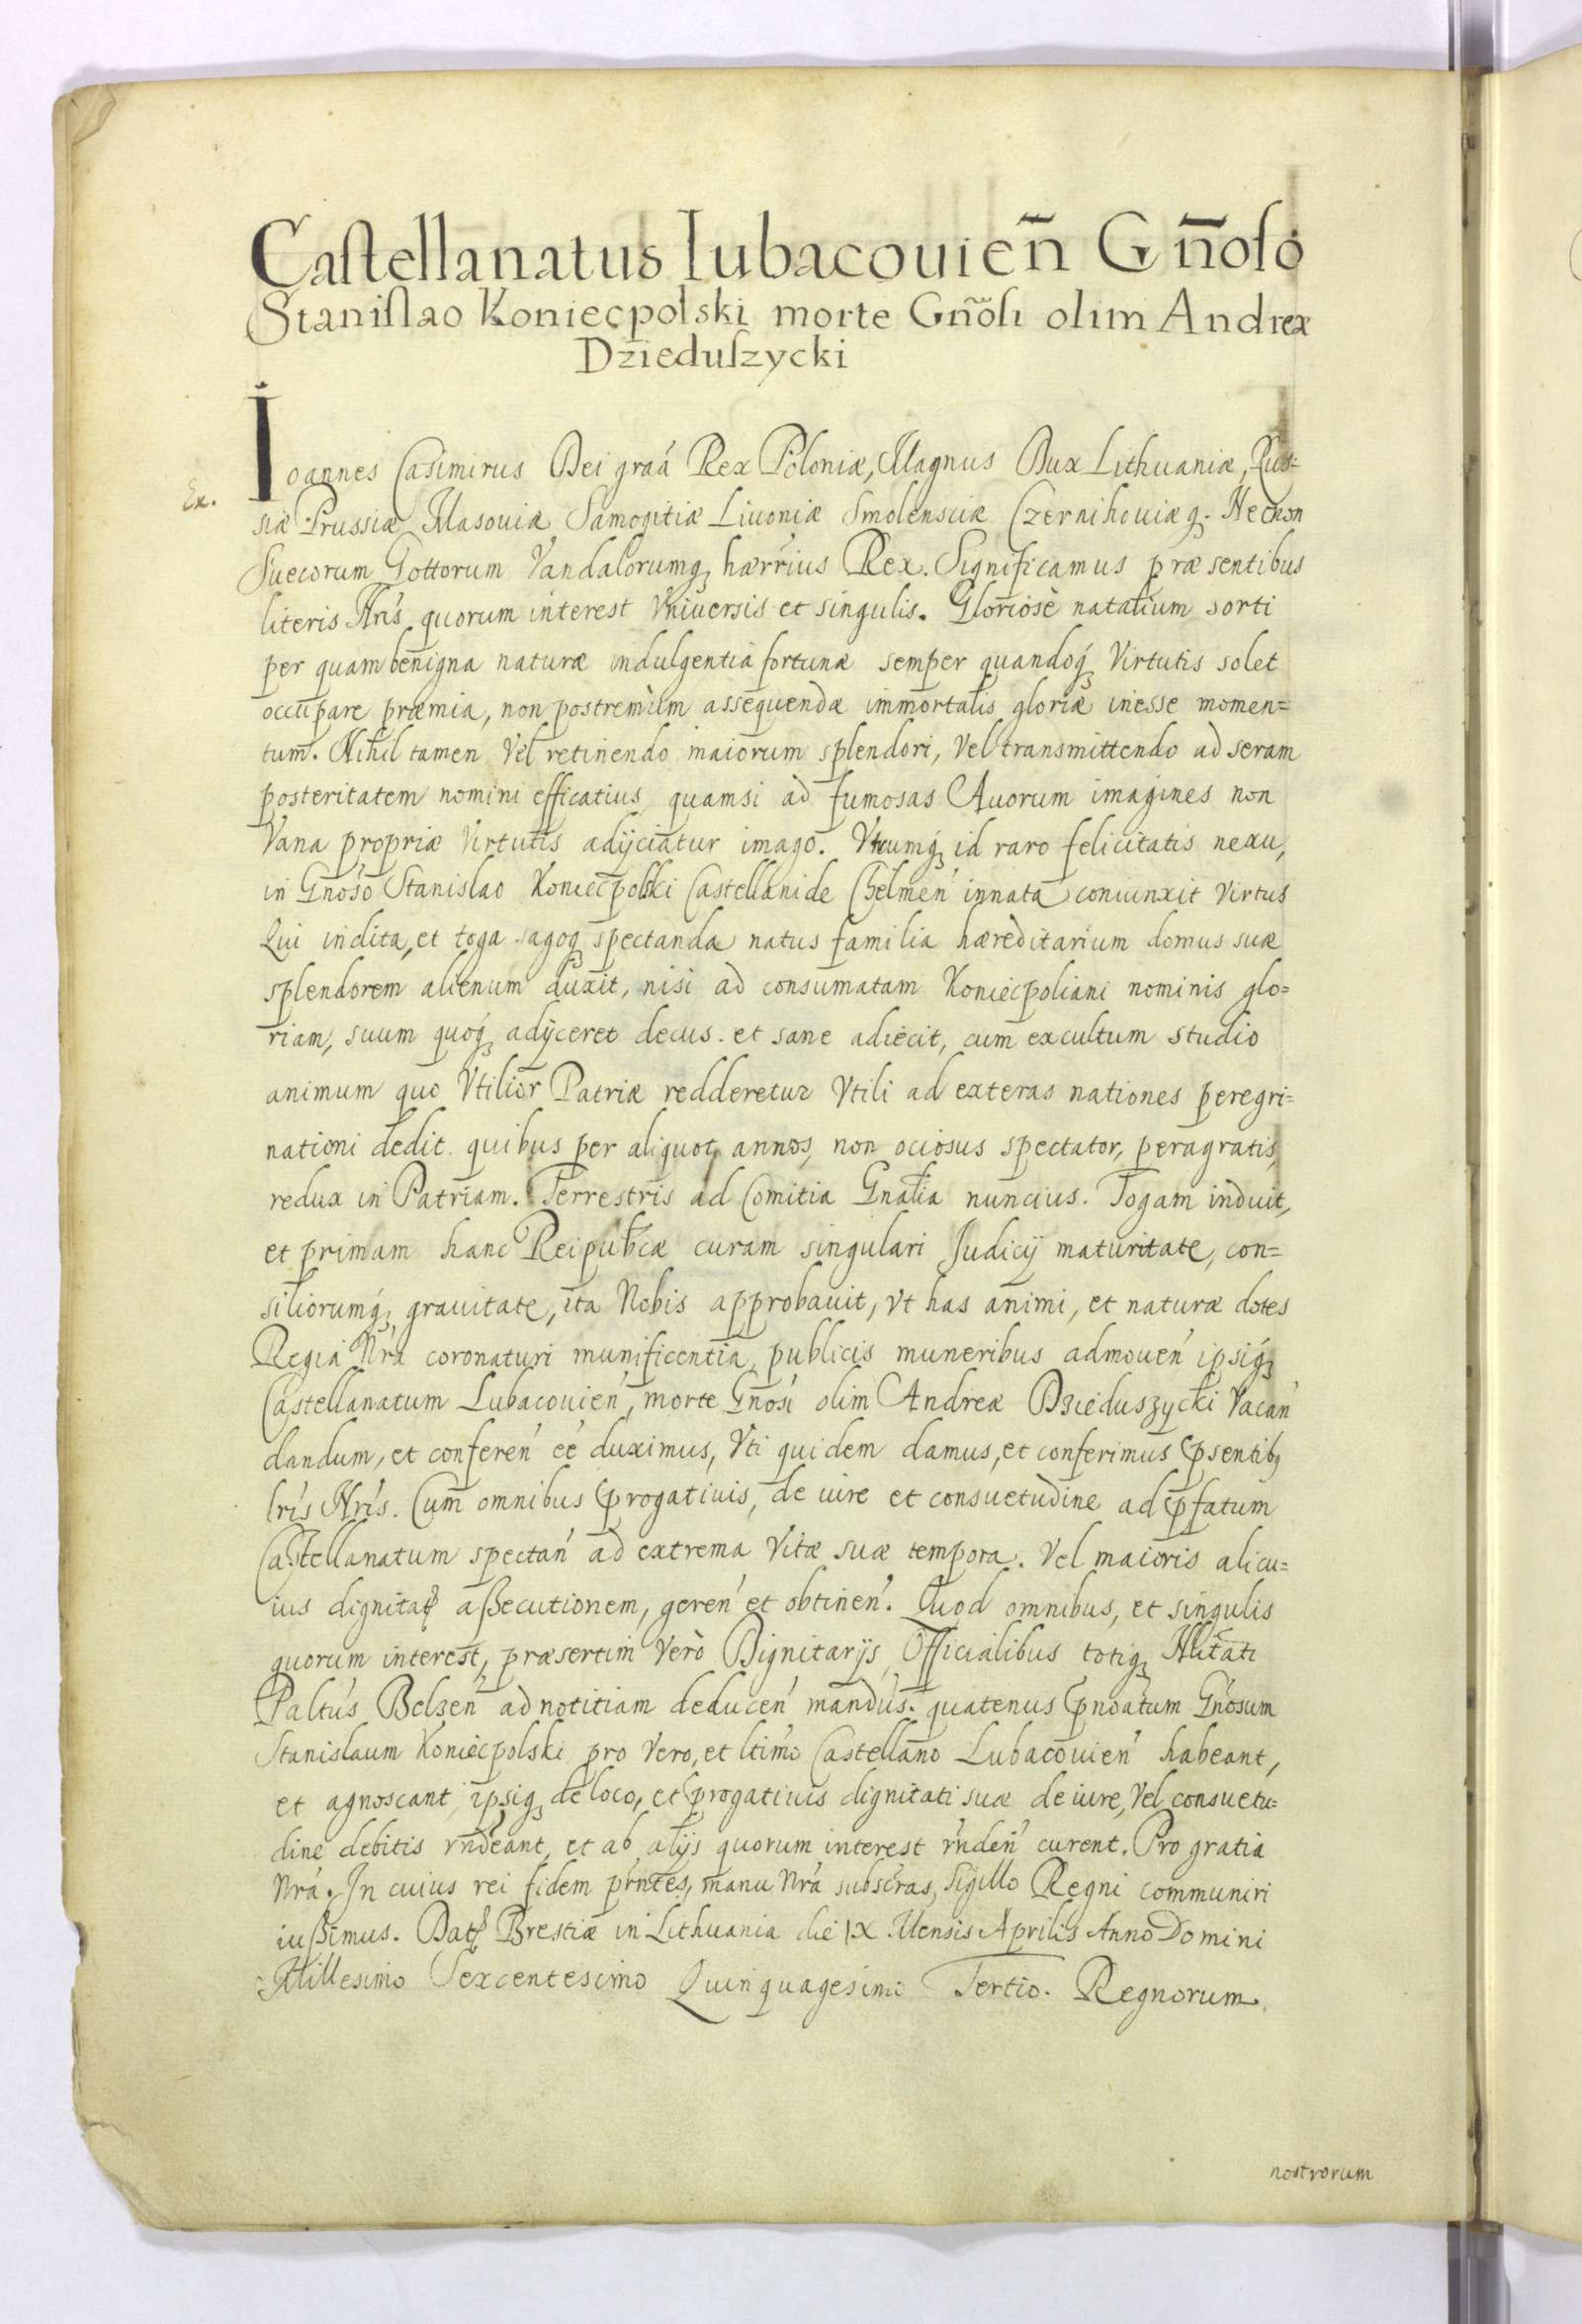 Castellanatus Lubacouień Gñoso
Stanislao Koniecpolski morte Gñosi olim Andreæ
Dzieduszycki
Ioannes Casimirus Dei graá Rex Poloniæ, Magnus Dux Lithuaniæ, Rus=
Ex.
siæ Prussiæ Masouiæ Samogitiæ Liuoniæ Smolensciæ Czernihouiæq. Necnon
Suecorum Gottorum Vandalorumq, hærrius Rex. Significamus præsentibus
literis Nris, quorum interest Vniuersis et singulis. Gloriosè natalium sorti
per quam benigna naturæ indulgentia fortunæ semper quandoq, Virtutis solet
occupare præmia, non postremùm assequendæ immortalis gloriæ inesse momen=
tum. Nihil tamen Vel retinendo maiorum splendori, Vel transmittendo ad seram
posteritatem nomini efficatius, quamsi ad fumosas Auorum imagines non
Vana propriæ Virtutis adijciatur imago. Vtrumq, id raro felicitatis nexu,
in Gnoso Stanislao Koniecpolski Castellanide Chelmeń innata coniunxit Virtus
Qui indita, et toga sagoq, spectanda natus familia hæreditarium domus suæ
splendorem alienum duxit, nisi ad consumatam Koniecpoliani nominis glo=
riam, suum quoq, adijceret decus. et sane adiecit, cum excultum studio
animum quo Vtilior Patriæ redderetur Vtili ad exteras nationes peregri=
nationi dedit. quibus per aliquot, annos, non ociosus spectator, peragratis,
redux in Patriam. Terrestris ad Comitia Gnalia nuncius. Togam induit,
et primam hanc Reipublcæ curam singulari Judicij maturitate, con=
siliorumq, grauitate, ita Nobis approbauit, Vt has animi, et naturæ dotes
Regia Nrá coronaturi munificentia, publicis muneribus admoueń ipsiq,
Castellanatum Lubacouień, morte Gñosi olim Andreæ Dzieduszycki Vacań
dandum, et confereń eé duximus, Vti quidem damus, et conferimus psentib,
lris Nris. Cum omnibus progatiuis, de iure et consuetudine ad pfatum
Castellanatum spectań ad extrema Vitæ suæ tempora. Vel maioris alicu=
ius dignitat aßecutionem, gereń et obtineń. Quod omnibus, et singulis
quorum interest, præsertim Verò Dignitarijs, Officialibus totiq, Nlitati
Paltus Belzeń ad notitiam deduceń mandus. quatenus pnoatum Gnosum
Stanislaum Koniecpolski pro Vero, et ltimo Castellano Lubacouień habeant,
et agnoscant, ipsiq, de loco, et progatiuis dignitati suæ de iure, Vel consuetu=
dine debitis rndeant, et ab alijs quorum interest rndeń curent. Pro gratia
Nrá. In cuius rei fidem prntes, manu Nrá subscras, Sigillo Regni communiri
iußimus. Dat Brestiæ in Lithuania die IX Mensis Aprilis Anno Domini
Millesimo Sexcentesimo Quinquagesimo Tertio. Regnorum
nostrorum